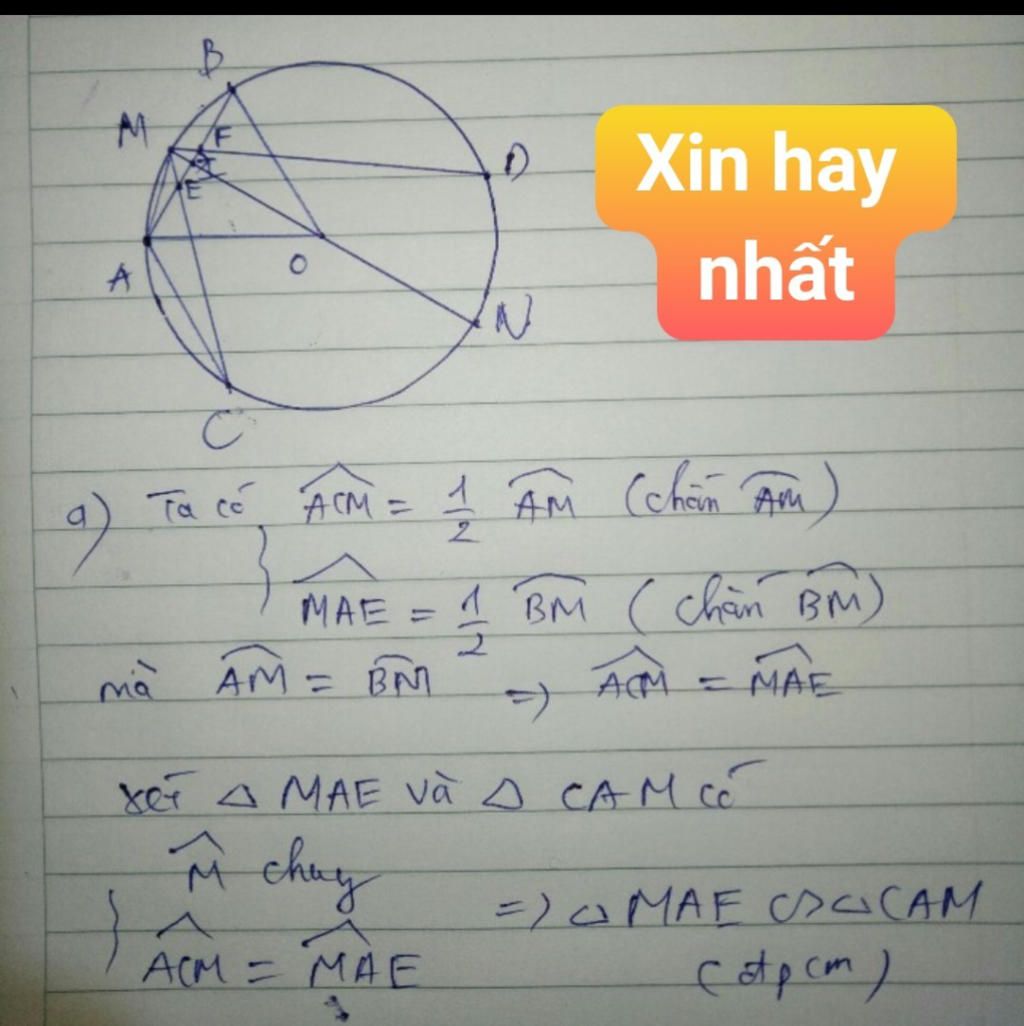 B
M
F
D
I
E
Xin hay
nhất
A
O
N
C
a) Ta có $\widehat{ACM} = \frac{1}{2} \overset{\frown}{AM}$ (chắn $\overset{\frown}{AM}$)
$\widehat{MAE} = \frac{1}{2} \overset{\frown}{BM}$ (chắn $\overset{\frown}{BM}$)
mà $\overset{\frown}{AM} = \overset{\frown}{BM}$ => $\widehat{ACM} = \widehat{MAE}$
xét △ MAE và △ CAM có
$\widehat{M}$ chug
=> △ MAE ∽ △ CAM
$\widehat{ACM} = \widehat{MAE}$ (đpcm)